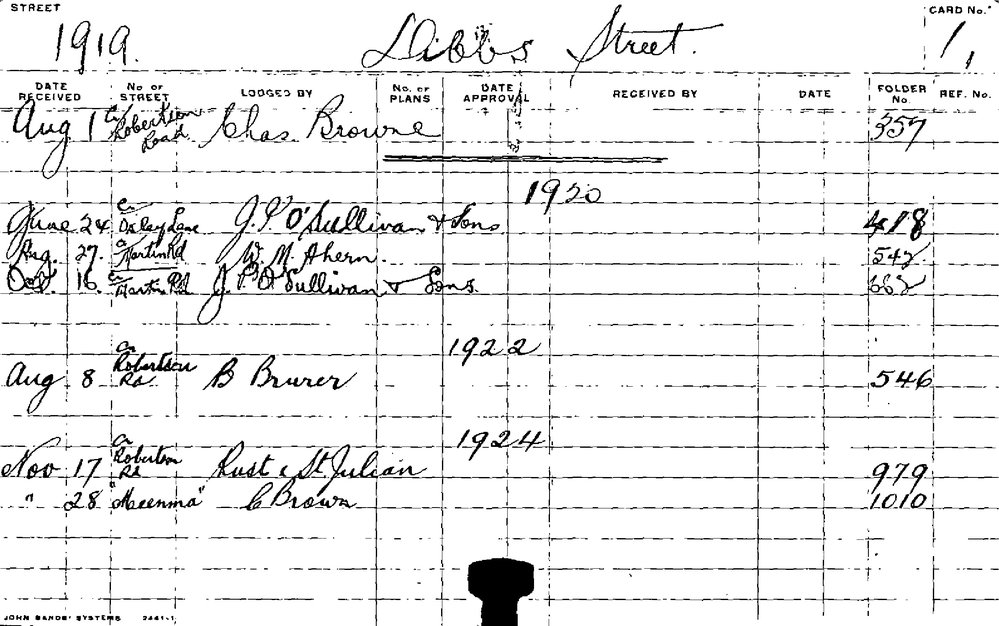 STREET CARD No.
1919. Dibbs Street. 1,
DATE RECEIVED No. or STREET LODGED BY No. or PLANS DATE APPROVAL RECEIVED BY DATE FOLDER No. REF. No.
Aug 1 Cr Robertson Road Chas. Browne 357
1920
June 24 Cr Oxley Lane J.P. O'Sullivan & Sons 418
Aug. 27. Cr Martin Rd W. M. Ahern. 542
Oct. 16. Cr Martin Rd J. P. O'Sullivan & Sons.
1922
Aug 8 Cr Robertson Rd. B 546
1924
Nov 17 Cr Robertson Rd Rust & St. Julian 979
" 28 C Brown 1010
JOHN SANDS' SYSTEMS 2441-1